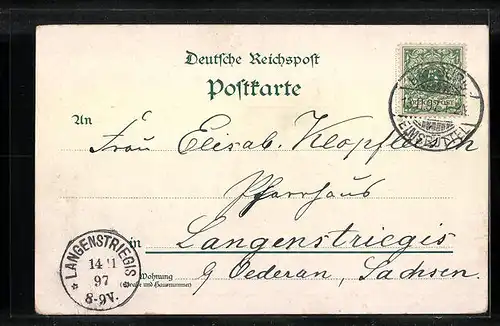 Deutsche Reichspost
Postkarte
An
Frau Elisab. Klopfleisch
Pfarrhaus
in Langenstriegis
Wohnung
(Straße und Hausnummer)
b/ Oederan, Sachsen.
LANGENSTRIEGIS
14 11
97
8-9V.